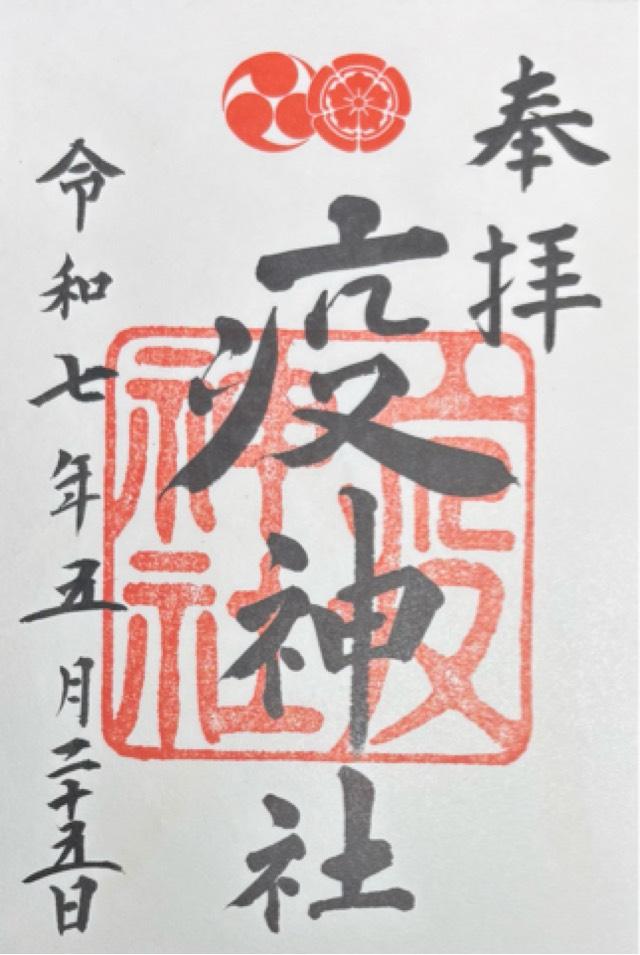 奉拝
疫神社
疫神社
令和七年五月二十五日